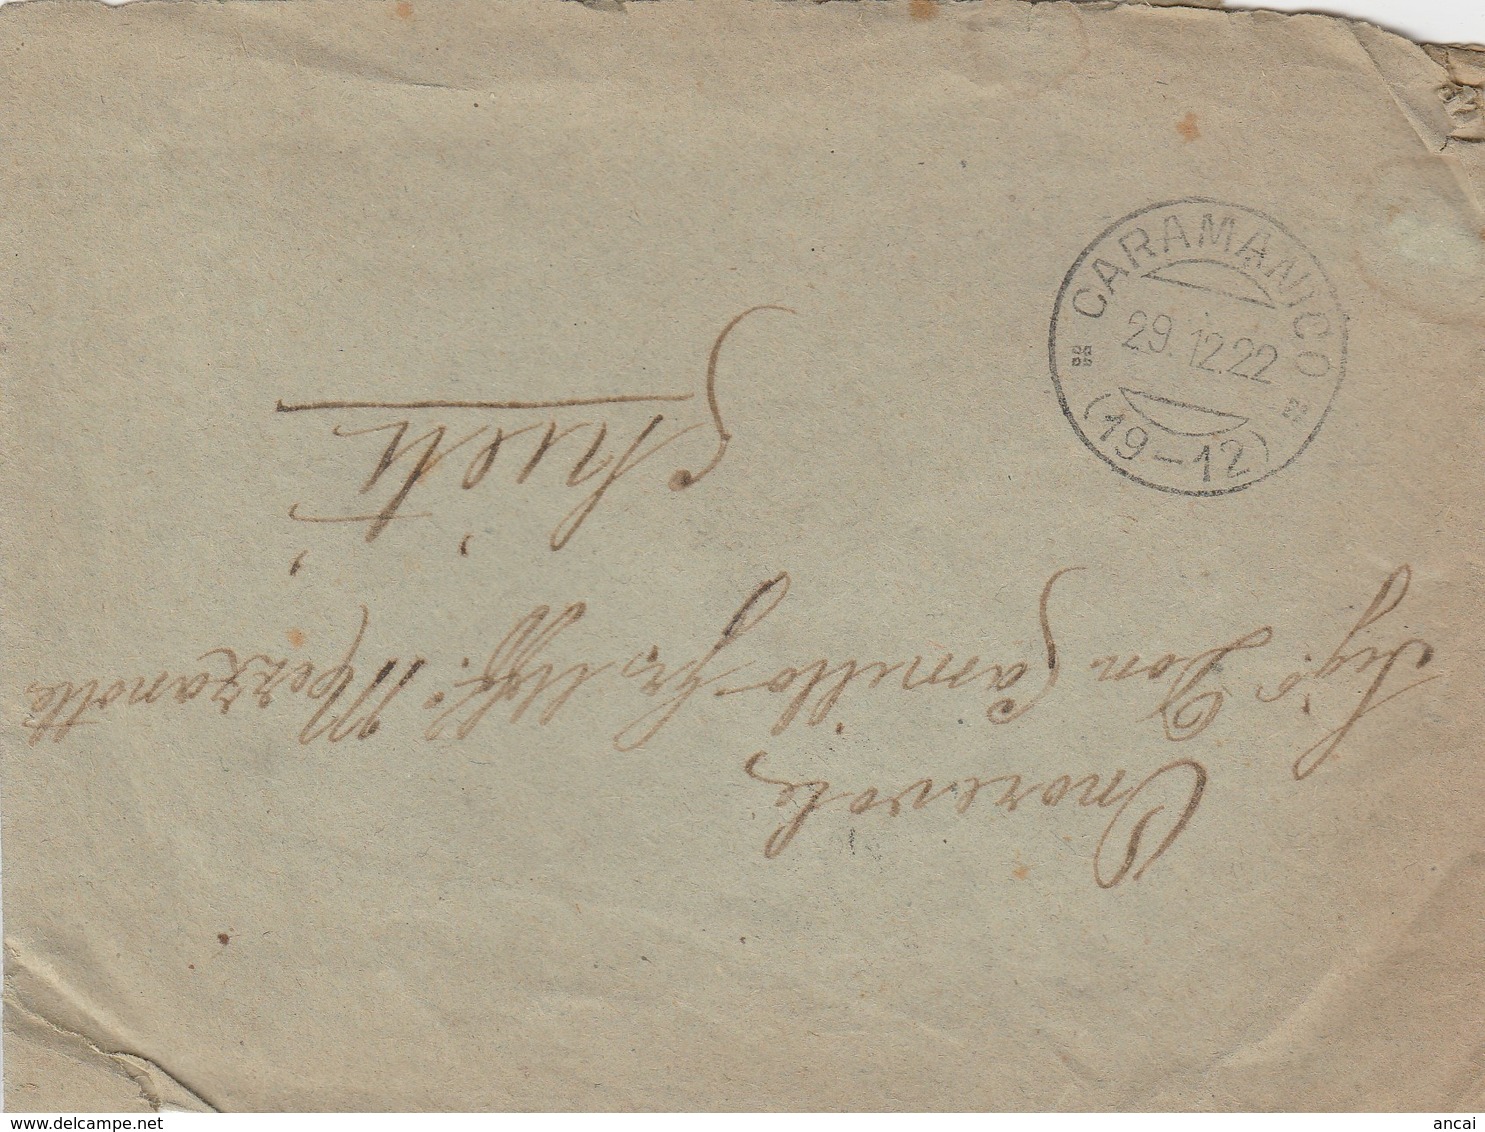 CARAMANICO
29.12.22
(19-12)
Onorevole
Sigr. Don Camillo Gr. Uff. Mezzanotte
Chieti
www.delcampe.net
ancai